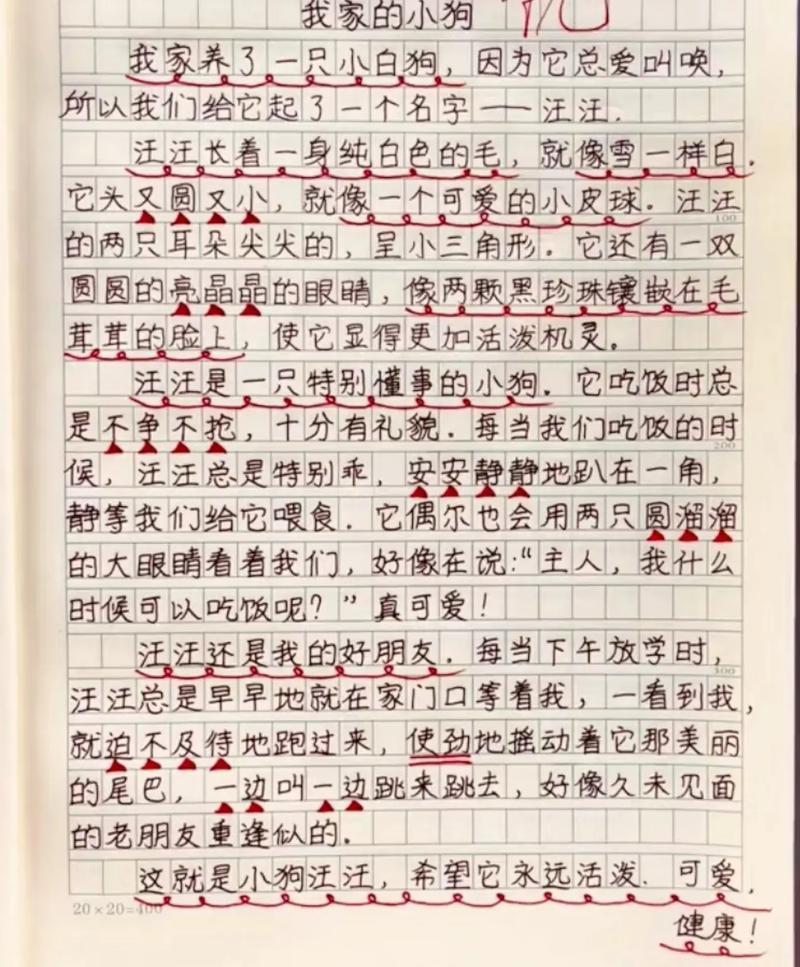 我家的小狗
我家养了一只小白狗，因为它总爱叫唤，
所以我们给它起了一个名字——汪汪.
汪汪长着一身纯白色的毛，就像雪一样白.
它头又圆又小，就像一个可爱的小皮球.汪汪
100
的两只耳朵尖尖的，呈小三角形.它还有一双
圆圆的亮晶晶的眼睛，像两颗黑珍珠镶嵌在毛
茸茸的脸上，使它显得更加活泼机灵。
汪汪是一只特别懂事的小狗.它吃饭时总
是不争不抢，十分有礼貌.每当我们吃饭的时
200
候，汪汪总是特别乖，安安静静地趴在一角，
静等我们给它喂食.它偶尔也会用两只圆溜溜
的大眼睛看着我们，好像在说:“主人，我什么
时候可以吃饭呢？”真可爱！
汪汪还是我的好朋友.每当下午放学时，
300
汪汪总是早早地就在家门口等着我，一看到我，
就迫不及待地跑过来，使劲地摇动着它那美丽
的尾巴，一边叫一边跳来跳去，好像久未见面
的老朋友重逢似的.
这就是小狗汪汪，希望它永远活泼.可爱，
20×20=400
健康！